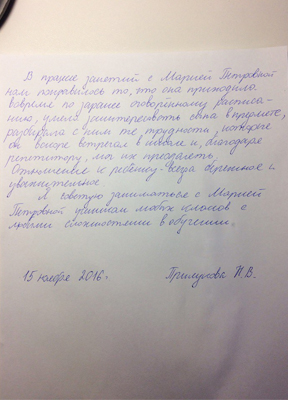 В працэе занятий с Марией Петровной
нам понравилось то, что она приходила
вовремя по заранее оговоренному расписа-
нию, умела заинтересовать сына в предмете,
разбирала с ним те трудности, которые
он вскоре встречал в школе и, благодаря
репетитору, мог их преодолеть.
Отношение к ребенку - всегда бережное и
уважительное.
Я советую заниматься с Марией
Петровной ученикам любых классов с
любыми сложностями в обучении.
15 ноября 2016г.
Прилукова Н.В.